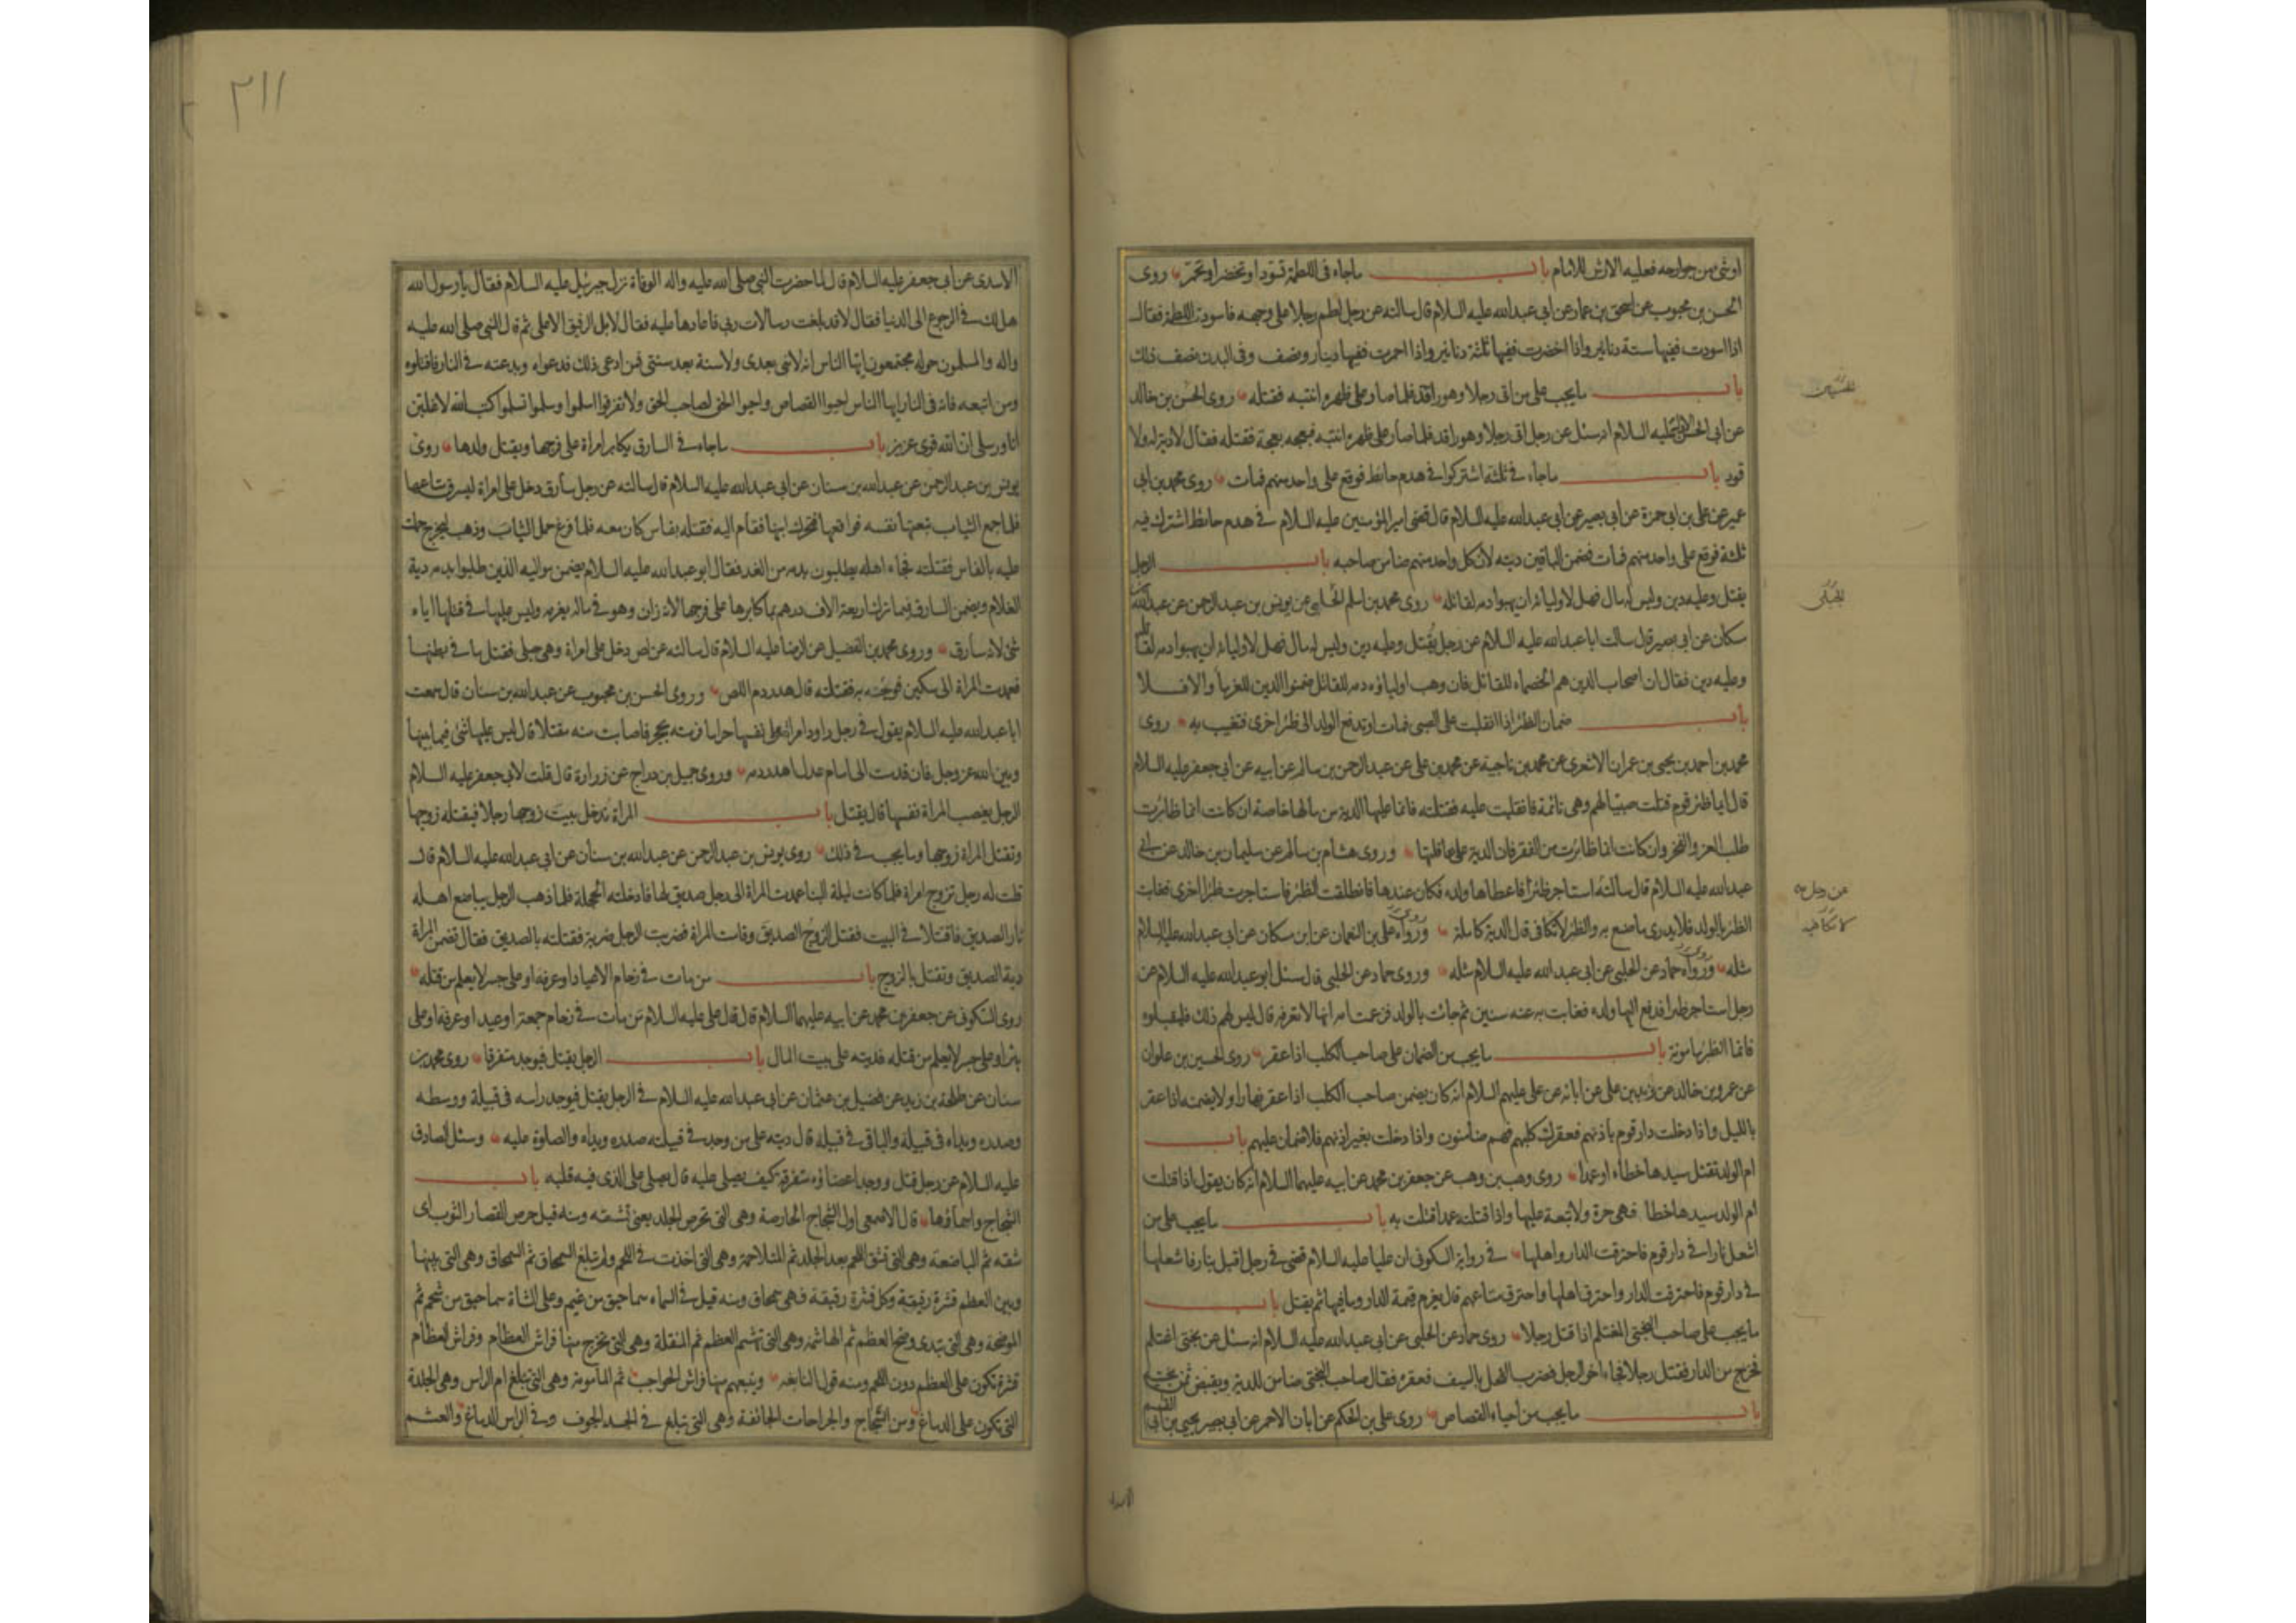 او شئ من جوارحه فعليه الارش للامام باب ماجاء فى اللطمة تسود او تخضر او تحمر روى
الحسن بن محبوب عن اسحق بن عمار عن ابى عبدالله عليه السلام قال سالته عن رجل لطم رجلا على وجهه فاسودت اللطمة فقال
اذا اسودت ففيها ستة دنانير واذا اخضرت ففيها ثلثة دنانير واذا احمرت ففيها دينار ونصف وفى البدن نصف ذلك
باب مايجب على من اتى رجلا وهو راقد فلما صار على ظهره انتبه فقتله روى الحسن بن خالد
عن ابى الحسن عليه السلام انه سئل عن رجل اتى رجلا وهو راقد فلما صار على ظهره انتبه فبعجه بعجة فقتله فقال لا دية له ولا
قود باب ماجاء فى ثلثة اشتركوا فى هدم حائط فوقع على واحد منهم فمات روى محمد بن ابى
عمير عن على بن ابى حمزة عن ابى بصير عن ابى عبدالله عليه السلام قال قضى امير المؤمنين عليه السلام فى هدم حائط اشترك فيه
ثلثة فوقع على واحد منهم فمات فضمن الباقين ديته لان كل واحد منهم ضامن صاحبه باب الرجل
يقتل وعليه دين وليس له مال فهل لاوليائه ان يهبوا دمه لقاتله روى محمد بن اسلم الجبلى عن يونس بن عبدالرحمن عن عبدالله
مسكان عن ابى بصير قال سالت ابا عبدالله عليه السلام عن رجل يقتل وعليه دين وليس له مال فهل لاوليائه ان يهبوا دمه
وعليه دين فقال ان اصحاب الدين هم الخصماء للقاتل فان وهب اولياؤه دمه للقاتل ضمنوا الدين للغرماء والا فلا
باب ضمان الظئر اذا انقلبت على الصبى فمات او تدفع الولد الى ظئر اخرى فتغيب به روى
محمد بن احمد بن يحيى بن عمران الاشعرى عن محمد بن ناجية عن محمد بن على عن عبدالرحمن بن سالم عن ابيه عن ابى جعفر عليه السلام
قال ايما ظئر قوم قتلت صبيا لهم وهى نائمة فانقلبت عليه فقتلته فانما عليها الدية من مالها خاصة ان كانت انما ظائرت
طلب العز والفخر وان كانت انما ظائرت من الفقر فان الدية على عاقلتها وروى هشام بن سالم عن سليمان بن خالد عن ابى
عبدالله عليه السلام قال سالته استاجر ظئرا فاعطاها ولده فكان عندها فانطلقت الظئر فاستاجرت ظئرا اخرى فغابت
الظئر بالولد فلا يدرى ما صنع به والظئر لا تكافى قال الدية كاملة ورواه على بن النعمان عن ابن مسكان عن ابى عبدالله عليه السلام
مثله ورواه حماد عن الحلبى عن ابى عبدالله عليه السلام مثله وروى حماد عن الحلبى قال سئل ابو عبدالله عليه السلام عن
رجل استاجر ظئرا فدفع اليها ولده فغابت به عنه سنين ثم جائت بالولد فزعمت امه انها لا تعرفه قال ليس لهم ذلك فليقبلوه
فانما الظئر مامونة باب مايجب من الضمان على صاحب الكلب اذا عقر روى الحسين بن علوان
عن عمرو بن خالد عن زيد بن على عن ابائه عن على عليهم السلام انه كان يضمن صاحب الكلب اذا عقر نهارا ولا يضمنه اذا عقر
بالليل واذا دخلت دار قوم باذنهم فعقرك كلبهم فهم ضامنون واذا دخلت بغير اذنهم فلا ضمان عليهم باب
ام الولد تقتل سيدها خطاء او عمدا روى وهب بن وهب عن جعفر بن محمد عن ابيه عليهما السلام انه كان يقول اذا قتلت
ام الولد سيدها خطا فهى حرة ولا تبعة عليها واذا قتلته عمدا قتلت به باب مايجب على من
اشعل نارا فى دار قوم فاحترقت الدار واهلها فى رواية السكونى ان عليا عليه السلام قضى فى رجل اقبل بنار فاشعلها
فى دار قوم فاحترقت الدار واحترق اهلها واحترق متاعهم قال يغرم قيمة الدار وما فيها ثم يقتل باب
مايجب على صاحب البختى المغتلم اذا قتل رجلا روى حماد عن الحلبى عن ابى عبدالله عليه السلام انه سئل عن بختى اغتلم
فخرج من الدار فقتل رجلا فجاء اخو الرجل فضرب الفحل بالسيف فعقره فقال صاحب البختى ضامن للدية ويقبض ثمن بختيه
باب مايجب من احياء القصاص روى على بن الحكم عن ابان الاحمر عن ابى بصير يحيى بن ابى القسم
من رجل به
الاسدى
٢١١
الاسدى عن ابى جعفر عليه السلام قال لما حضرت النبى صلى الله عليه واله الوفاة نزل جبرئيل عليه السلام فقال يا رسول الله
هل لك فى الرجوع الى الدنيا فقال لا قد بلغت رسالات ربى فاعادها عليه فقال لا بل الرفيق الاعلى ثم قال النبى صلى الله عليه
واله والمسلمون حوله مجتمعون ايها الناس انه لا نبى بعدى ولا سنة بعد سنتى فمن ادعى ذلك فدعواه وبدعته فى النار فاقتلوه
ومن اتبعه فانه فى النار ايها الناس احيوا القصاص واحيوا الحق لصاحب الحق ولا تفرقوا اسلموا وسلموا تسلموا كتب الله لاغلبن
انا ورسلى ان الله قوى عزيز باب ماجاء فى السارق يكابر امراة على فرجها ويقتل ولدها روى
يونس بن عبدالرحمن عن عبدالله بن سنان عن ابى عبدالله عليه السلام قال سالته عن رجل سارق دخل على امراة ليسرق متاعها
فلما جمع الثياب تبعتها نفسه فواقعها فتحرك ابنها فقام اليه فقتله بفاس كان معه فلما فرغ حمل الثياب وذهب ليخرج حملت
عليه بالفاس فقتلته فجاء اهله يطلبون بدمه من الغد فقال ابو عبدالله عليه السلام يضمن مواليه الذين طلبوا بدمه دية
الغلام ويضمن السارق فيما ترك اربعة الاف درهم بما كابرها على فرجها لانه زان وهو فى ماله يغرمه وليس عليها فى قتلها اياه
شئ لانه سارق وروى محمد بن الفضيل عن الرضا عليه السلام قال سالته عن لص دخل على امراة وهى حبلى فقتل ما فى بطنها
فعمدت المراة الى سكين فوجئته به فقتلته قال هدر دم اللص وروى الحسن بن محبوب عن عبدالله بن سنان قال سمعت
ابا عبدالله عليه السلام يقول فى رجل راود امراة على نفسها حراما فرمته بحجر فاصابت منه مقتلا قال ليس عليها شئ فيما بينها
وبين الله عز وجل فان قدمت الى امام عدل اهدر دمه وروى جميل بن دراج عن زرارة قال قلت لابى جعفر عليه السلام
الرجل يغصب المراة نفسها قال يقتل باب المراة تدخل بيت زوجها رجلا فيقتله زوجها
وتقتل المراة زوجها وما يجب فى ذلك روى يونس بن عبدالرحمن عن عبدالله بن سنان عن ابى عبدالله عليه السلام قال
قلت له رجل تزوج امراة فلما كانت ليلة البنا عمدت المراة الى رجل صديق لها فادخلته الحجلة فلما ذهب الرجل يباضع اهله
ثار الصديق فاقتتلا فى البيت فقتل الزوج الصديق وقامت المراة فضربت الرجل ضربة فقتلته بالصديق فقال تضمن المراة
دية الصديق وتقتل بالزوج باب من مات فى زحام الاعياد او عرفة او على جسر لا يعلم من قتله
روى السكونى عن جعفر بن محمد عن ابيه عليهما السلام قال قال على عليه السلام من مات فى زحام جمعة او عيد او عرفة او على
بئر او على جسر لا يعلم من قتله فديته على بيت المال باب الرجل يقتل فيوجد متفرقا روى محمد بن
سنان عن طلحة بن زيد عن فضيل بن عثمان عن ابى عبدالله عليه السلام فى الرجل يقتل فيوجد راسه فى قبيلة ووسطه
وصدره ويداه فى قبيلة والباقى فى قبيلة قال ديته على من وجد فى قبيلته صدره ويداه والصلوة عليه وسئل الصادق
عليه السلام عن رجل قتل ووجد اعضاؤه متفرقة كيف يصلى عليه قال يصلى على الذى فيه قلبه باب
الشجاج واسماؤها قال الاصمعى اول الشجاج الحارصة وهى التى تحرص الجلد يعنى تشقه ومنه قيل حرص القصار الثوب اى
شقه ثم الباضعة وهى التى تشق اللحم بعد الجلد ثم المتلاحمة وهى التى اخذت فى اللحم ولم تبلغ السمحاق ثم السمحاق وهى التى بينها
وبين العظم قشرة رقيقة وكل قشرة رقيقة فهى سمحاق ومنه قيل فى السماء سماحيق من غيم وعلى الشاة سماحيق من شحم ثم
الموضحة وهى التى تبدى وضح العظم ثم الهاشمة وهى التى تهشم العظم ثم المنقلة وهى التى تخرج منها فراش العظام وفراش العظام
قشرة تكون على العظم دون اللحم ومنه قول النابغه ويتبعهم منها فراش الحواجب ثم المامومة وهى التى تبلغ ام الراس وهى الجلدة
التى تكون على الدماغ ومن الشجاج والجراحات الجائفة وهى التى تبلغ فى الجسد الجوف وفى الراس الدماغ والعثم